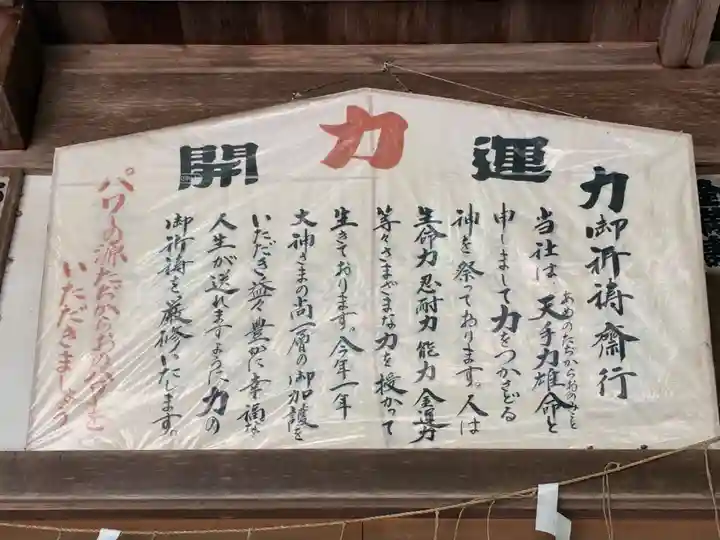 開 力 運
力御祈祷斎行
当社は、天手力雄命と
あめのたぢからおのみこと
申しまして力をつかさどる
神を祭っております。人は
生命力 忍耐力 能力 金運力
等々さまざまな力を授かって
生きております。今年一年
大神さまの尚一層の御加護を
いただき益々豊かに幸福な
人生が送れますように力の
御祈祷を厳修いたします。
パワーの源たぢからおのパワーを
いただきましょう